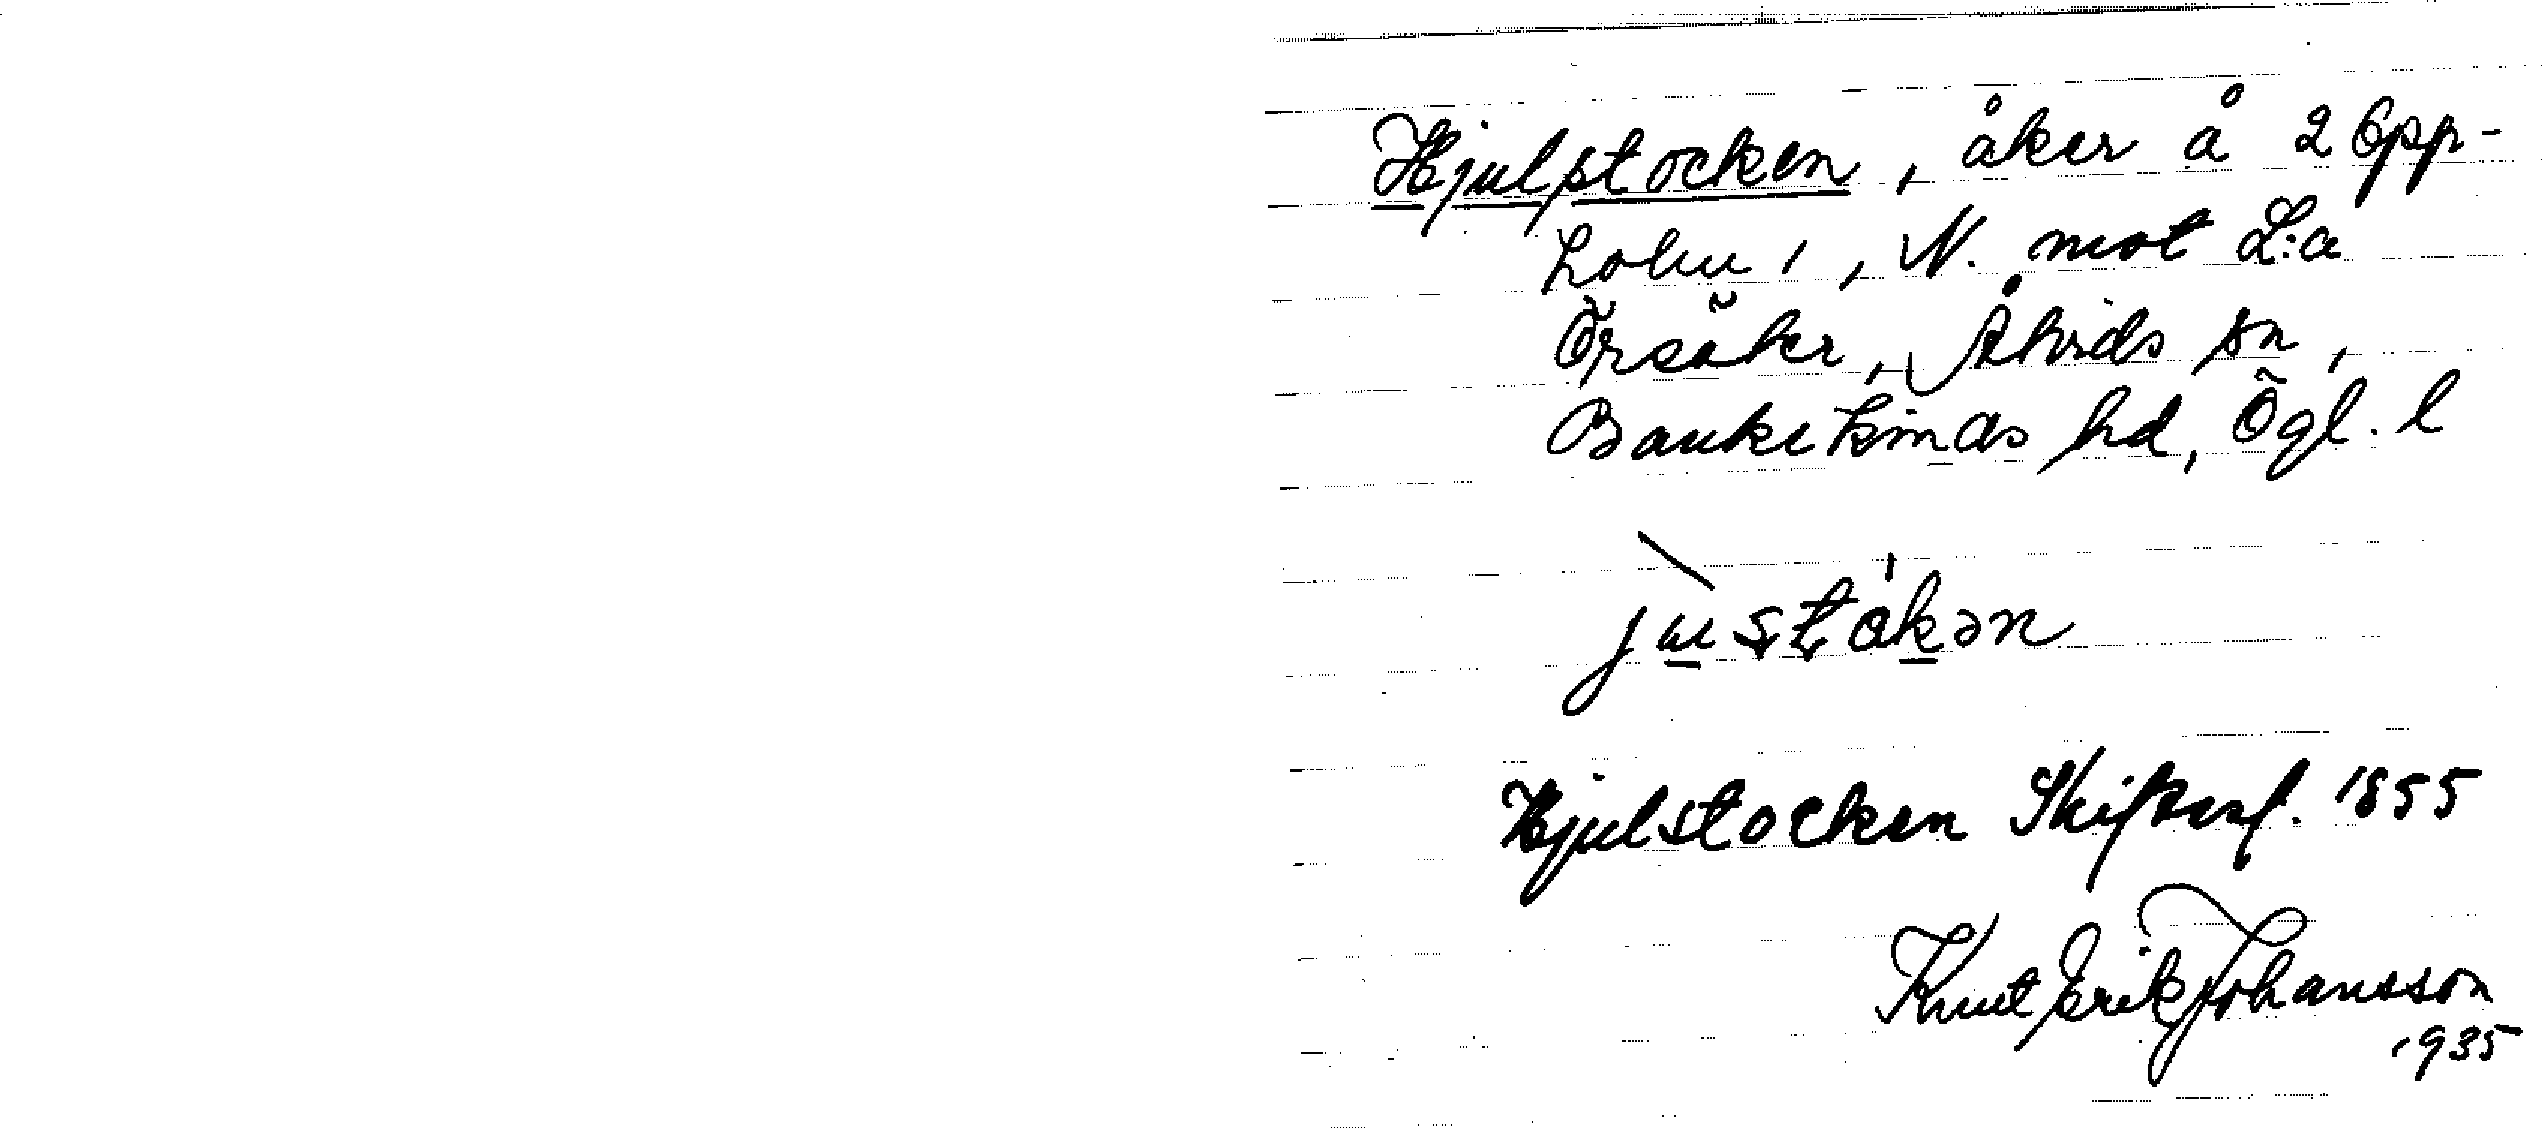 Hjulstocken, åker å 2 Opp-
lohu 1, N. mot L:a
Örsåkr, Åkirds sn,
Bankekinds hd, Ögl. l
justakən
Hjulstocken Skiftesf. 1855
Knut Erik Johansson
1935